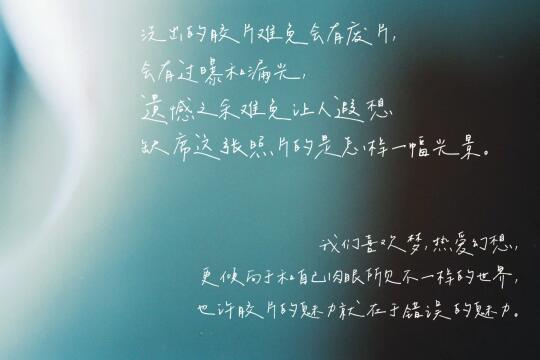 洗出的胶片难免会有废片,
会有过曝和漏光,
遗憾之余难免让人遐想
缺席这张照片的是怎样一幅光景。
我们喜欢梦,热爱幻想,
更倾向于和自己肉眼所见不一样的世界,
也许胶片的魅力就在于错误的魅力。